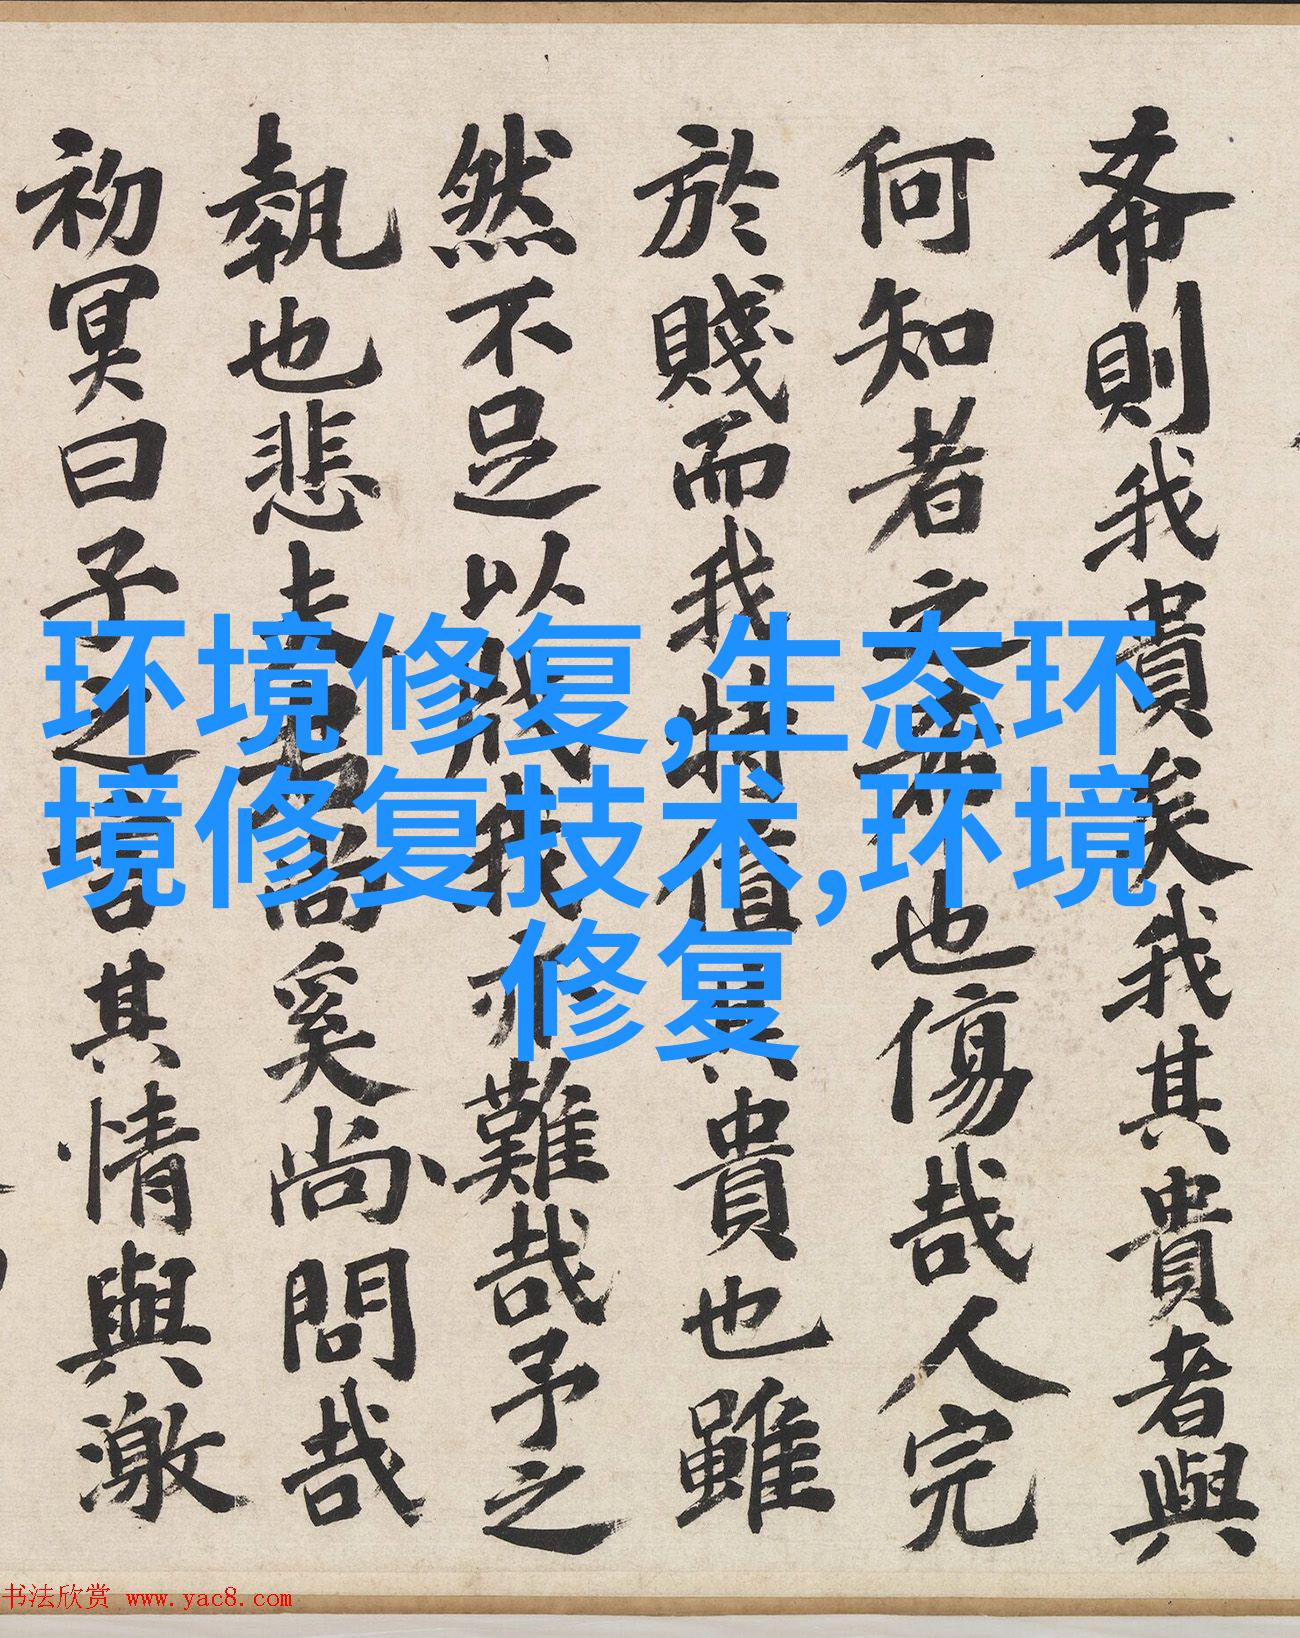 希則我貴矣我其貴者與
何知者之希也傷哉人完
於賤而我特值其貴也雖
然不足以戕我亦難哉予之
執也悲夫尚奚尚問哉
初冥曰子之言其情與激
环境修复,生态环
境修复技术,环境
修复
书法欣赏 www.yac8.com